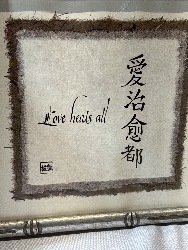 Love heals all
愛治愈都